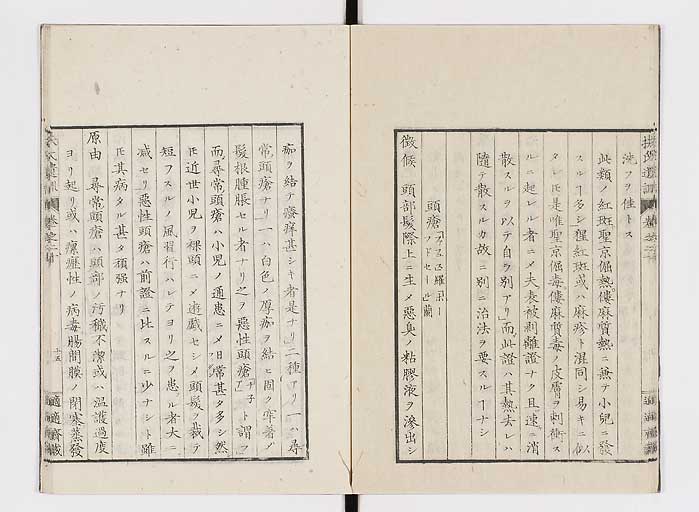 洗フヲ佳トス
此類ノ紅斑聖京倔熱僂麻質熱ニ無テ小兒ニ發
スルヿ多シ猩紅斑或ハ麻疹ト混同シ易キニ似
タレ𪜈是唯聖京倔毒僂麻質毒ノ皮膚ヲ刺衝ス
ルニ起レル者ニメ夫表被剥離證ナク且速ニ消
散スルヲ以テ自ラ別アリ而此證ハ其熱去レハ
隨テ散スルカ故ニ別ニ治法ヲ要スルヿナシ
頭瘡
徴候 頭部髮際上ニ生メ惡臭ノ粘膠液ヲ滲出シ
痂ヲ結テ癢痒甚シキ者是ナリ二種アリ一ハ尋
常頭瘡ナリ一ハ白色ノ厚痂ヲ結ヒ固ク牢着メ
髮根腫脹セル者ナリ之ヲ惡性頭瘡ト謂フ
而尋常頭瘡ハ小兒ノ通患ニメ日常甚タ多シ然
𪜈近世小兒ヲ裸頭ニメ遊戯セシメ頭髮ヲ裁テ
短フスルノ風習行ハレテヨリ之ヲ患ル者大ニ
减セリ惡性頭瘡ハ前證ニ比スルニ少ナシト雖
𪜈其病タル甚タ頑強ナリ
原由 尋常頭瘡ハ頭部ノ汚穢不潔或ハ温護過度
ヨリ起リ或ハ瘰癧性ノ病毒腸間膜ノ閉塞蒸發
十五
適適齋藏